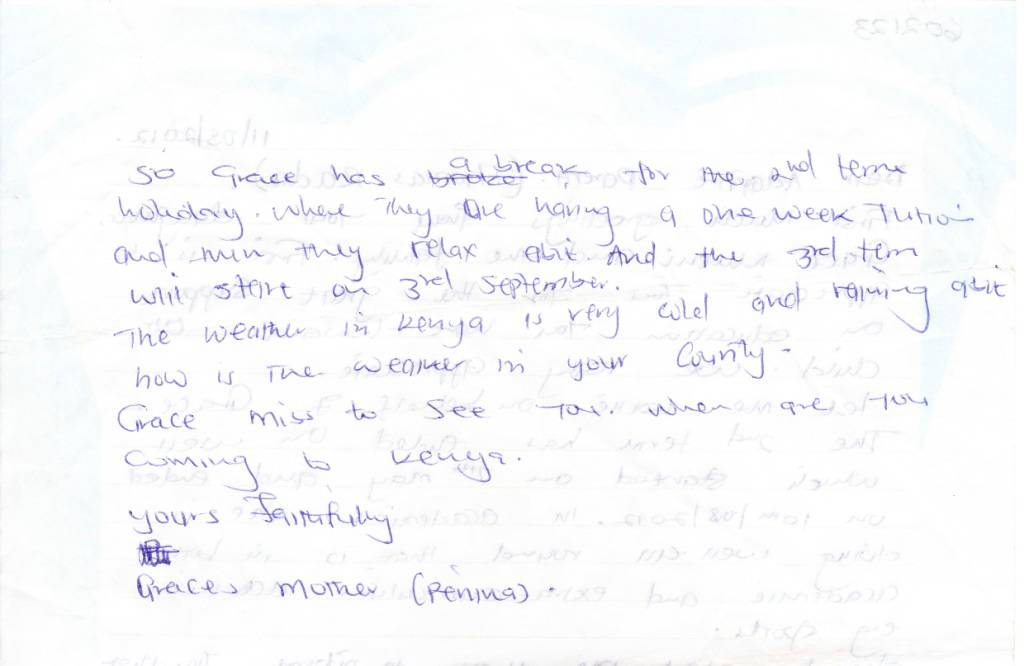 So Grace has a break for the 2nd term
holiday. where They are having a one week Tution
and then they relax abit And the 3rd term
will start on 3rd September.
The weather in kenya is very cold and raining abit
how is The weather in your County.
Grace miss to See You. when are You
Coming to kenya.
yours Faithfully
Graces mother (Penina).